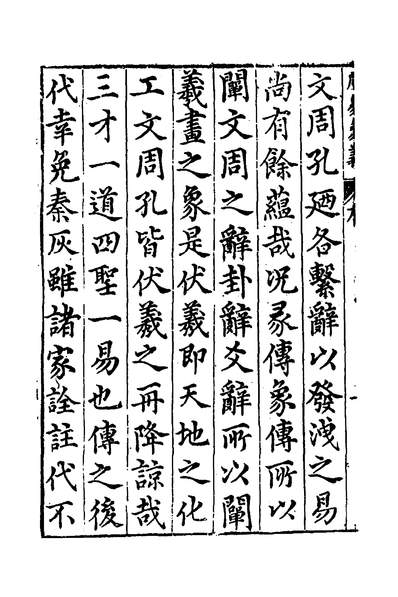 文周孔廼各繫辭以發洩之易
尚有餘蘊哉况彖傳象傳所以
闡文周之辭卦辭爻辭所以闡
羲畫之象是伏羲即天地之化
工文周孔皆伏羲之再降諒哉
三才一道四聖一易也傳之後
代幸免秦灰雖諸家詮註代不